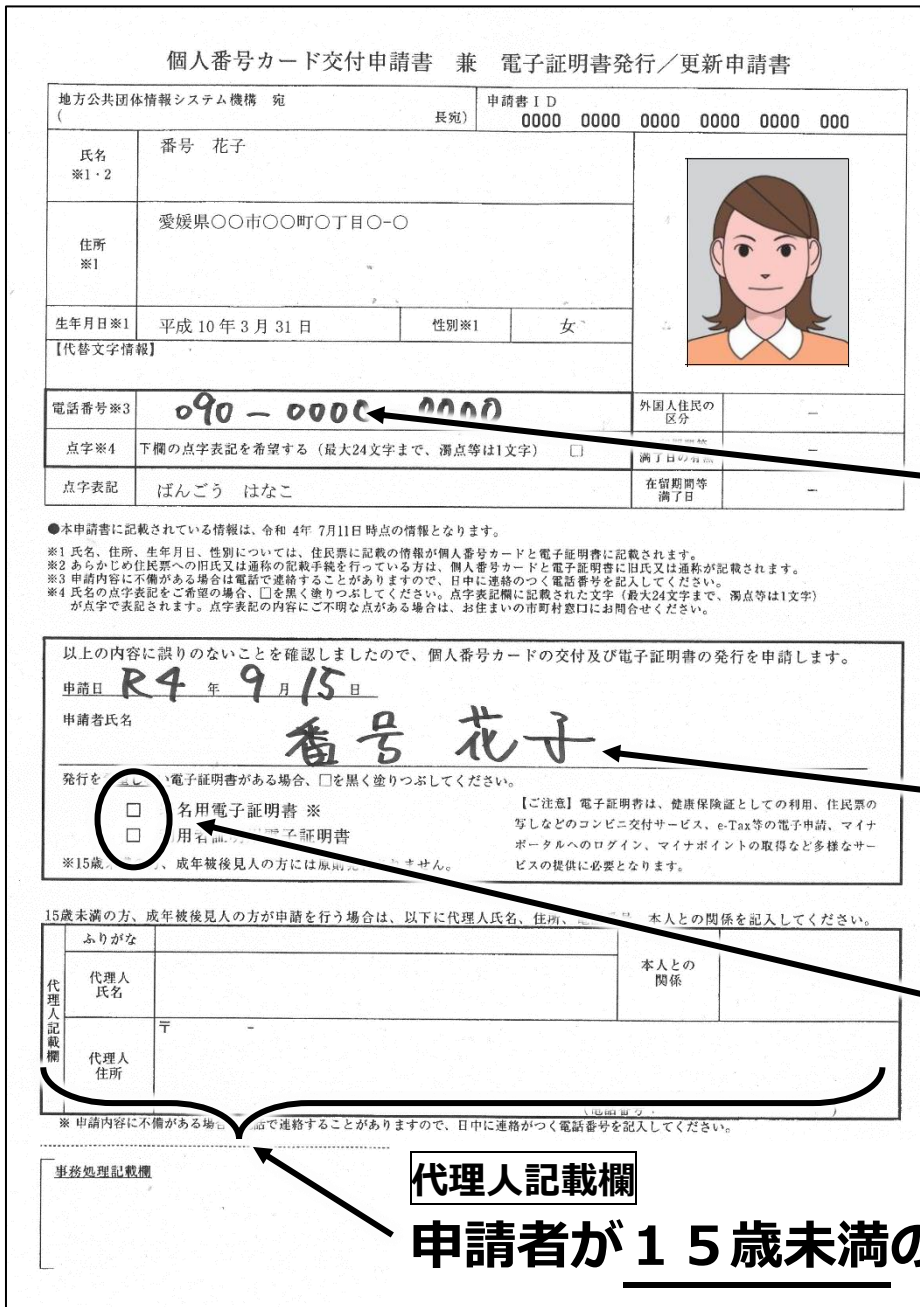 個人番号カード交付申請書 兼 電子証明書発行／更新申請書
地方公共団体情報システム機構 宛
( 長宛)
申請書ID
0000 0000 0000 0000 0000 000
氏名
※1・2
番号 花子
住所
※1
愛媛県○○市○○町○丁目○-○
生年月日※1
平成10年3月31日
性別※1
女
【代替文字情報】
電話番号※3
090-0000 0000
外国人住民の
区分
-
点字※4
下欄の点字表記を希望する（最大24文字まで、濁点等は1文字） □
満了日の有無
-
点字表記
ばんごう はなこ
在留期間等
満了日
-
●本申請書に記載されている情報は、令和 4年 7月11日時点の情報となります。
※1 氏名、住所、生年月日、性別については、住民票に記載の情報が個人番号カードと電子証明書に記載されます。
※2 あらかじめ住民票への旧氏又は通称の記載手続を行っている方は、個人番号カードと電子証明書に旧氏又は通称が記載されます。
※3 申請内容に不備がある場合は電話で連絡することがありますので、日中に連絡のつく電話番号を記入してください。
※4 氏名の点字表記をご希望の場合、□を黒く塗りつぶしてください。点字表記欄に記載された文字（最大24文字まで、濁点等は1文字）
が点字で表記されます。点字表記の内容にご不明な点がある場合は、お住まいの市町村窓口にお問合せください。
以上の内容に誤りのないことを確認しましたので、個人番号カードの交付及び電子証明書の発行を申請します。
申請日 R4 年 9 月 15 日
申請者氏名
番号 花子
発行を い電子証明書がある場合、□を黒く塗りつぶしてください。
□ 名用電子証明書 ※
□ 用者証明用電子証明書
※15歳 、成年被後見人の方には原則 ません。
【ご注意】電子証明書は、健康保険証としての利用、住民票の
写しなどのコンビニ交付サービス、e-Tax等の電子申請、マイナ
ポータルへのログイン、マイナポイントの取得など多様なサー
ビスの提供に必要となります。
15歳未満の方、成年被後見人の方が申請を行う場合は、以下に代理人氏名、住所、 本人との関係を記入してください。
代理人記載欄
ふりがな
代理人
氏名
本人との
関係
代理人
住所
〒 -
(電話番号: )
※ 申請内容に不備がある場合 話で連絡することがありますので、日中に連絡がつく電話番号を記入してください。
事務処理記載欄
代理人記載欄
申請者が１５歳未満の